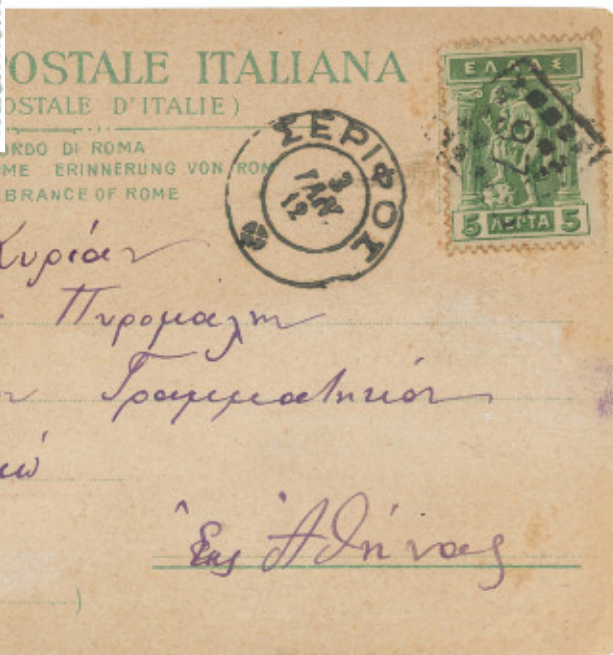 POSTALE ITALIANA
POSTALE D'ITALIE)
ORDO DI ROMA
ME ERINNERUNG VON ROM
BRANCE OF ROME
ΣΕΡΙΦΟΣ
3
ΙΑΝ
12
ΕΛΛΑΣ
5 ΛΕΠΤΑ 5
Κυρίαν
Πυρομαλη
Γραμματικόν
Εις Ἀθήνας